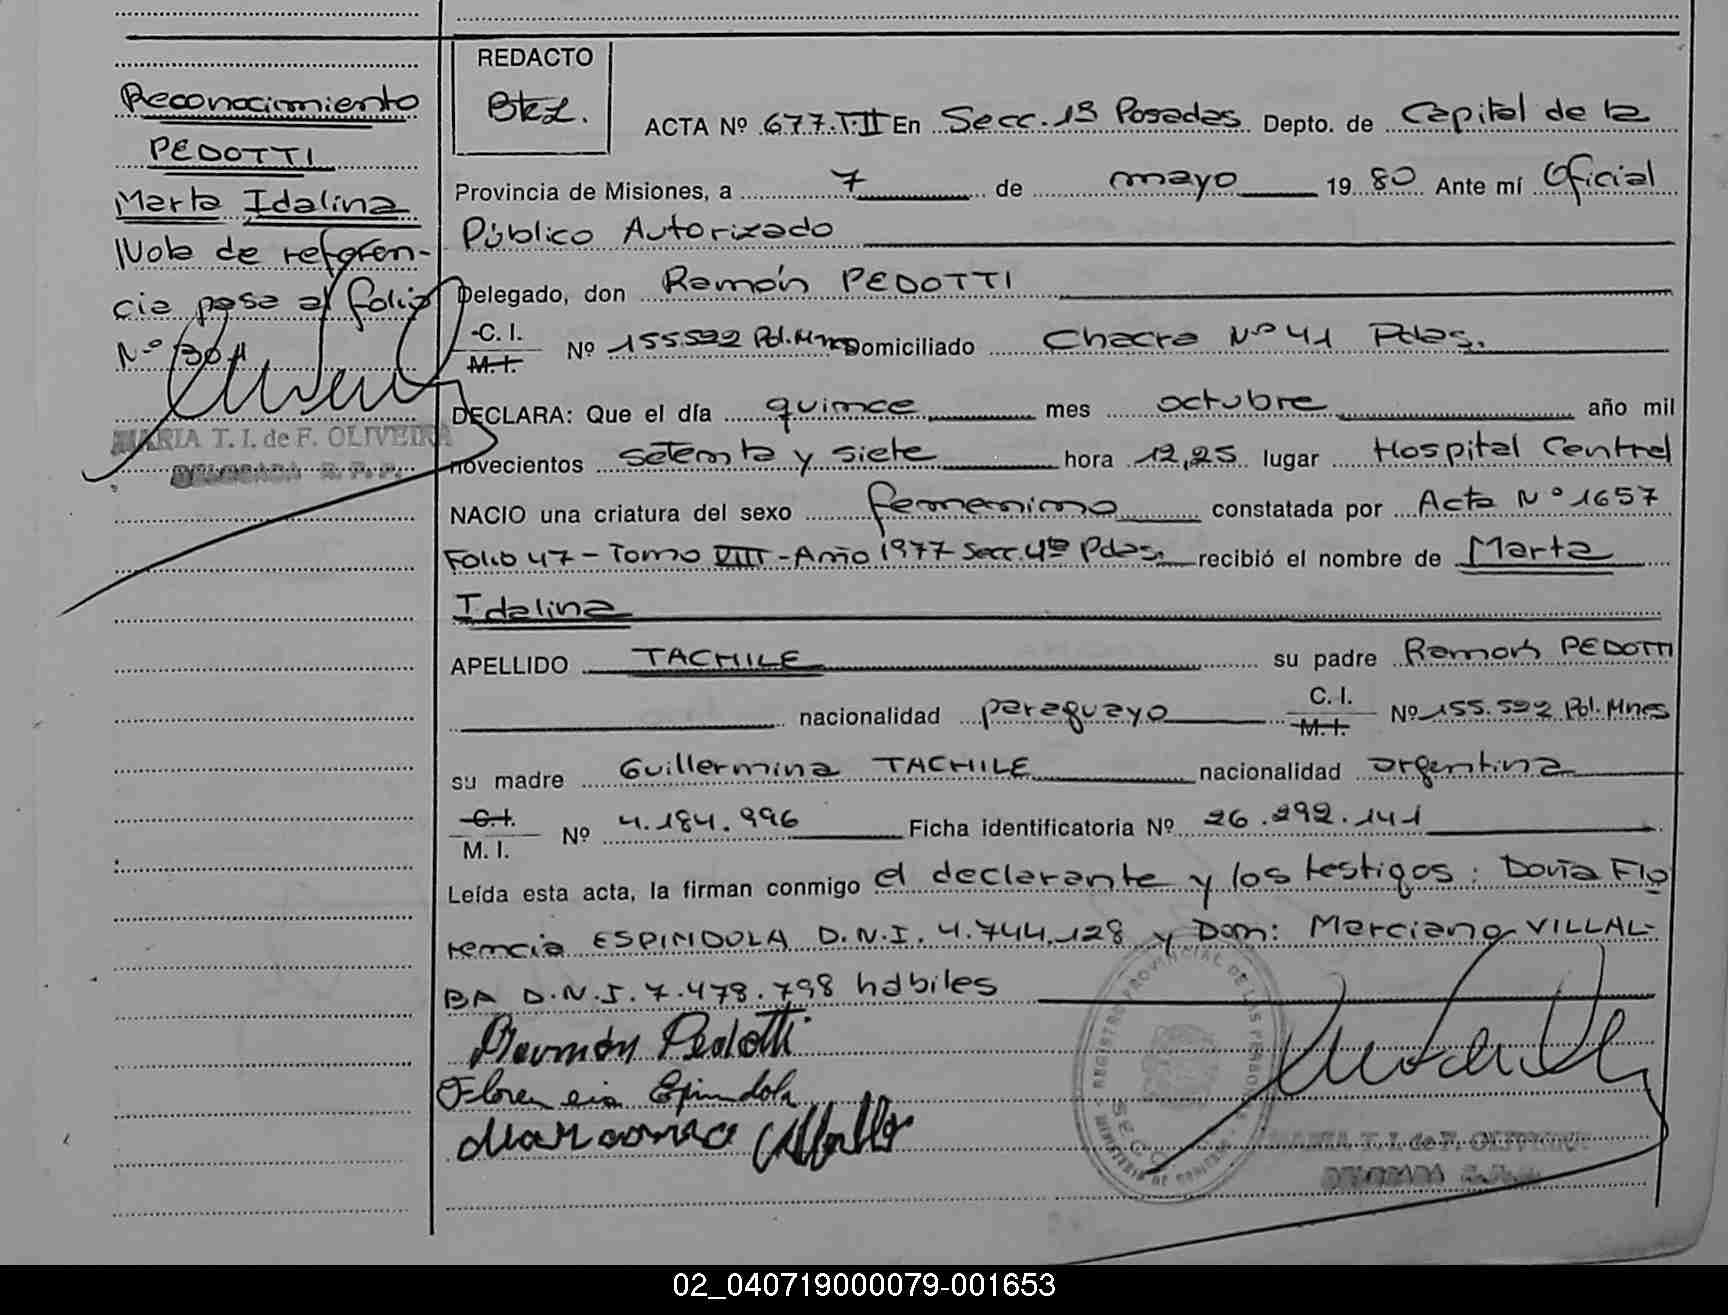 Reconocimiento
PEDOTTI
Marta Idalina
Nota de referen-
cia pasa al folio
Nº
MARIA T. I. de F. OLIVEIRA
DELEGADA R. P. P.
REDACTO
ACTA Nº 677.T.II En Secc. 1ª Posadas Depto. de Capital de la
Provincia de Misiones, a 7 de mayo 19 80 Ante mí Oficial
Público Autorizado
Delegado, don Ramón PEDOTTI
C. I.
M. I. Nº 155.592 Pol. Mnes Domiciliado Chacra Nº 41 Pdas.
DECLARA: Que el día quince mes octubre año mil
novecientos setenta y siete hora 12,25 lugar Hospital Central
NACIO una criatura del sexo femenino constatada por Acta Nº 1657
Folio 47 - Tomo VIII - Año 1977 Secc. 4ta Pdas. recibió el nombre de Marta
Idalina
APELLIDO TACHILE su padre Ramón PEDOTTI
nacionalidad paraguayo C. I. M. I. Nº 155.592 Pol. Mnes
su madre Guillermina TACHILE nacionalidad argentina
C. I.
M. I. Nº 4.184.996 Ficha identificatoria Nº 26.292.141
Leída esta acta, la firman conmigo el declarante y los testigos: Doña Flo
rencia ESPINDOLA D.N.I. 4.744.128 y Don: Marciano VILLAL-
BA D.N.I. 7.478.798 hábiles
Ramón Pedotti
Florencia Espindola
Marciano Villalba
REGISTRO PROVINCIAL DE LAS PERSONAS
MINISTERIO DE GOBIERNO
MARIA T. I. de F. OLIVEIRA
DELEGADA R. P. P.
02_040719000079-001653